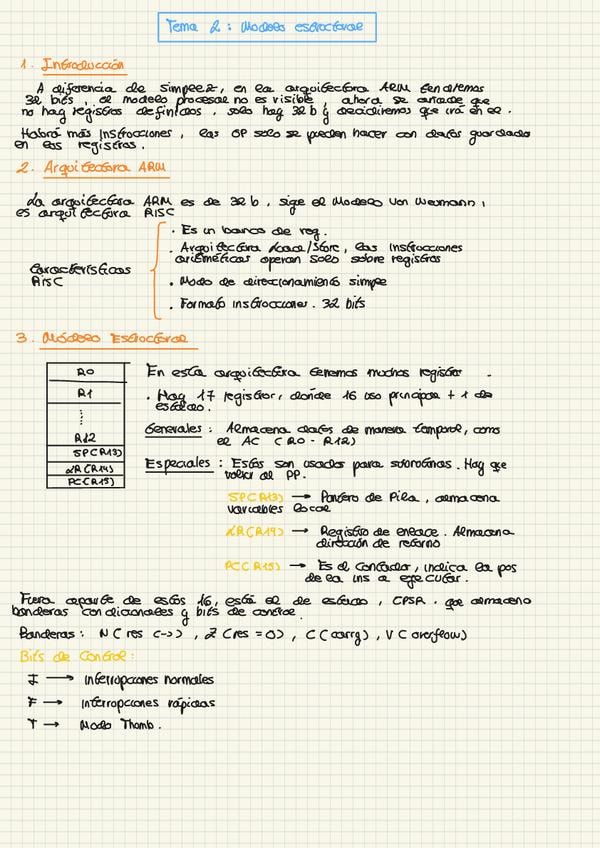 Tema 2: Modelo estructural
1. Introducción
A diferencia de simplez, en la arquitectura ARM tendremos
32 bits, el modelo procesal no es visible, ahora se añade que
no hay registros definidos, solo hay 32 b y decidiremos que irá en el.
Habrá más Instrucciones, las OP solo se pueden hacer con datos guardados
en los registros.
2. Arquitectura ARM
La arquitectura ARM es de 32 b, sige el Modelo Von Neumann,
es arquitectura RISC
Características
RISC
· Es un banco de reg.
· Arquitectura Load/Store, las Instrucciones
aritméticas operan solo sobre registros
· Modo de direccionamiento simple
· Formato instrucciones. 32 bits
3. Modelo Estructural
R0
R1
R12
SP(R13)
LR(R14)
PC(R15)
En esta arquitectura tenemos muchos registros.
· Hay 17 registros, donde 16 uso principal + 1 de
estado.
Generales: Almacena datos de manera temporal, como
el AC (R0 - R12)
Especiales: Estos son usados para subrutinas. Hay que
volver al PP.
SP(R13) → Puntero de Pila, almacena
variables local
LR(R14) → Registro de enlace. Almacena
dirección de retorno
PC(R15) → Es el Contador, indica la pos
de la ins a ejecutar.
Fuera aparte de estos 16, está el de estado, CPSR. que almacena
banderas condicionales y bits de control.
Banderas: N (res (-)), Z (res = 0), C (carry), V (overflow)
Bits de Control:
I → Interrupciones normales
F → Interrupciones rápidas
T → Modo Thumb.